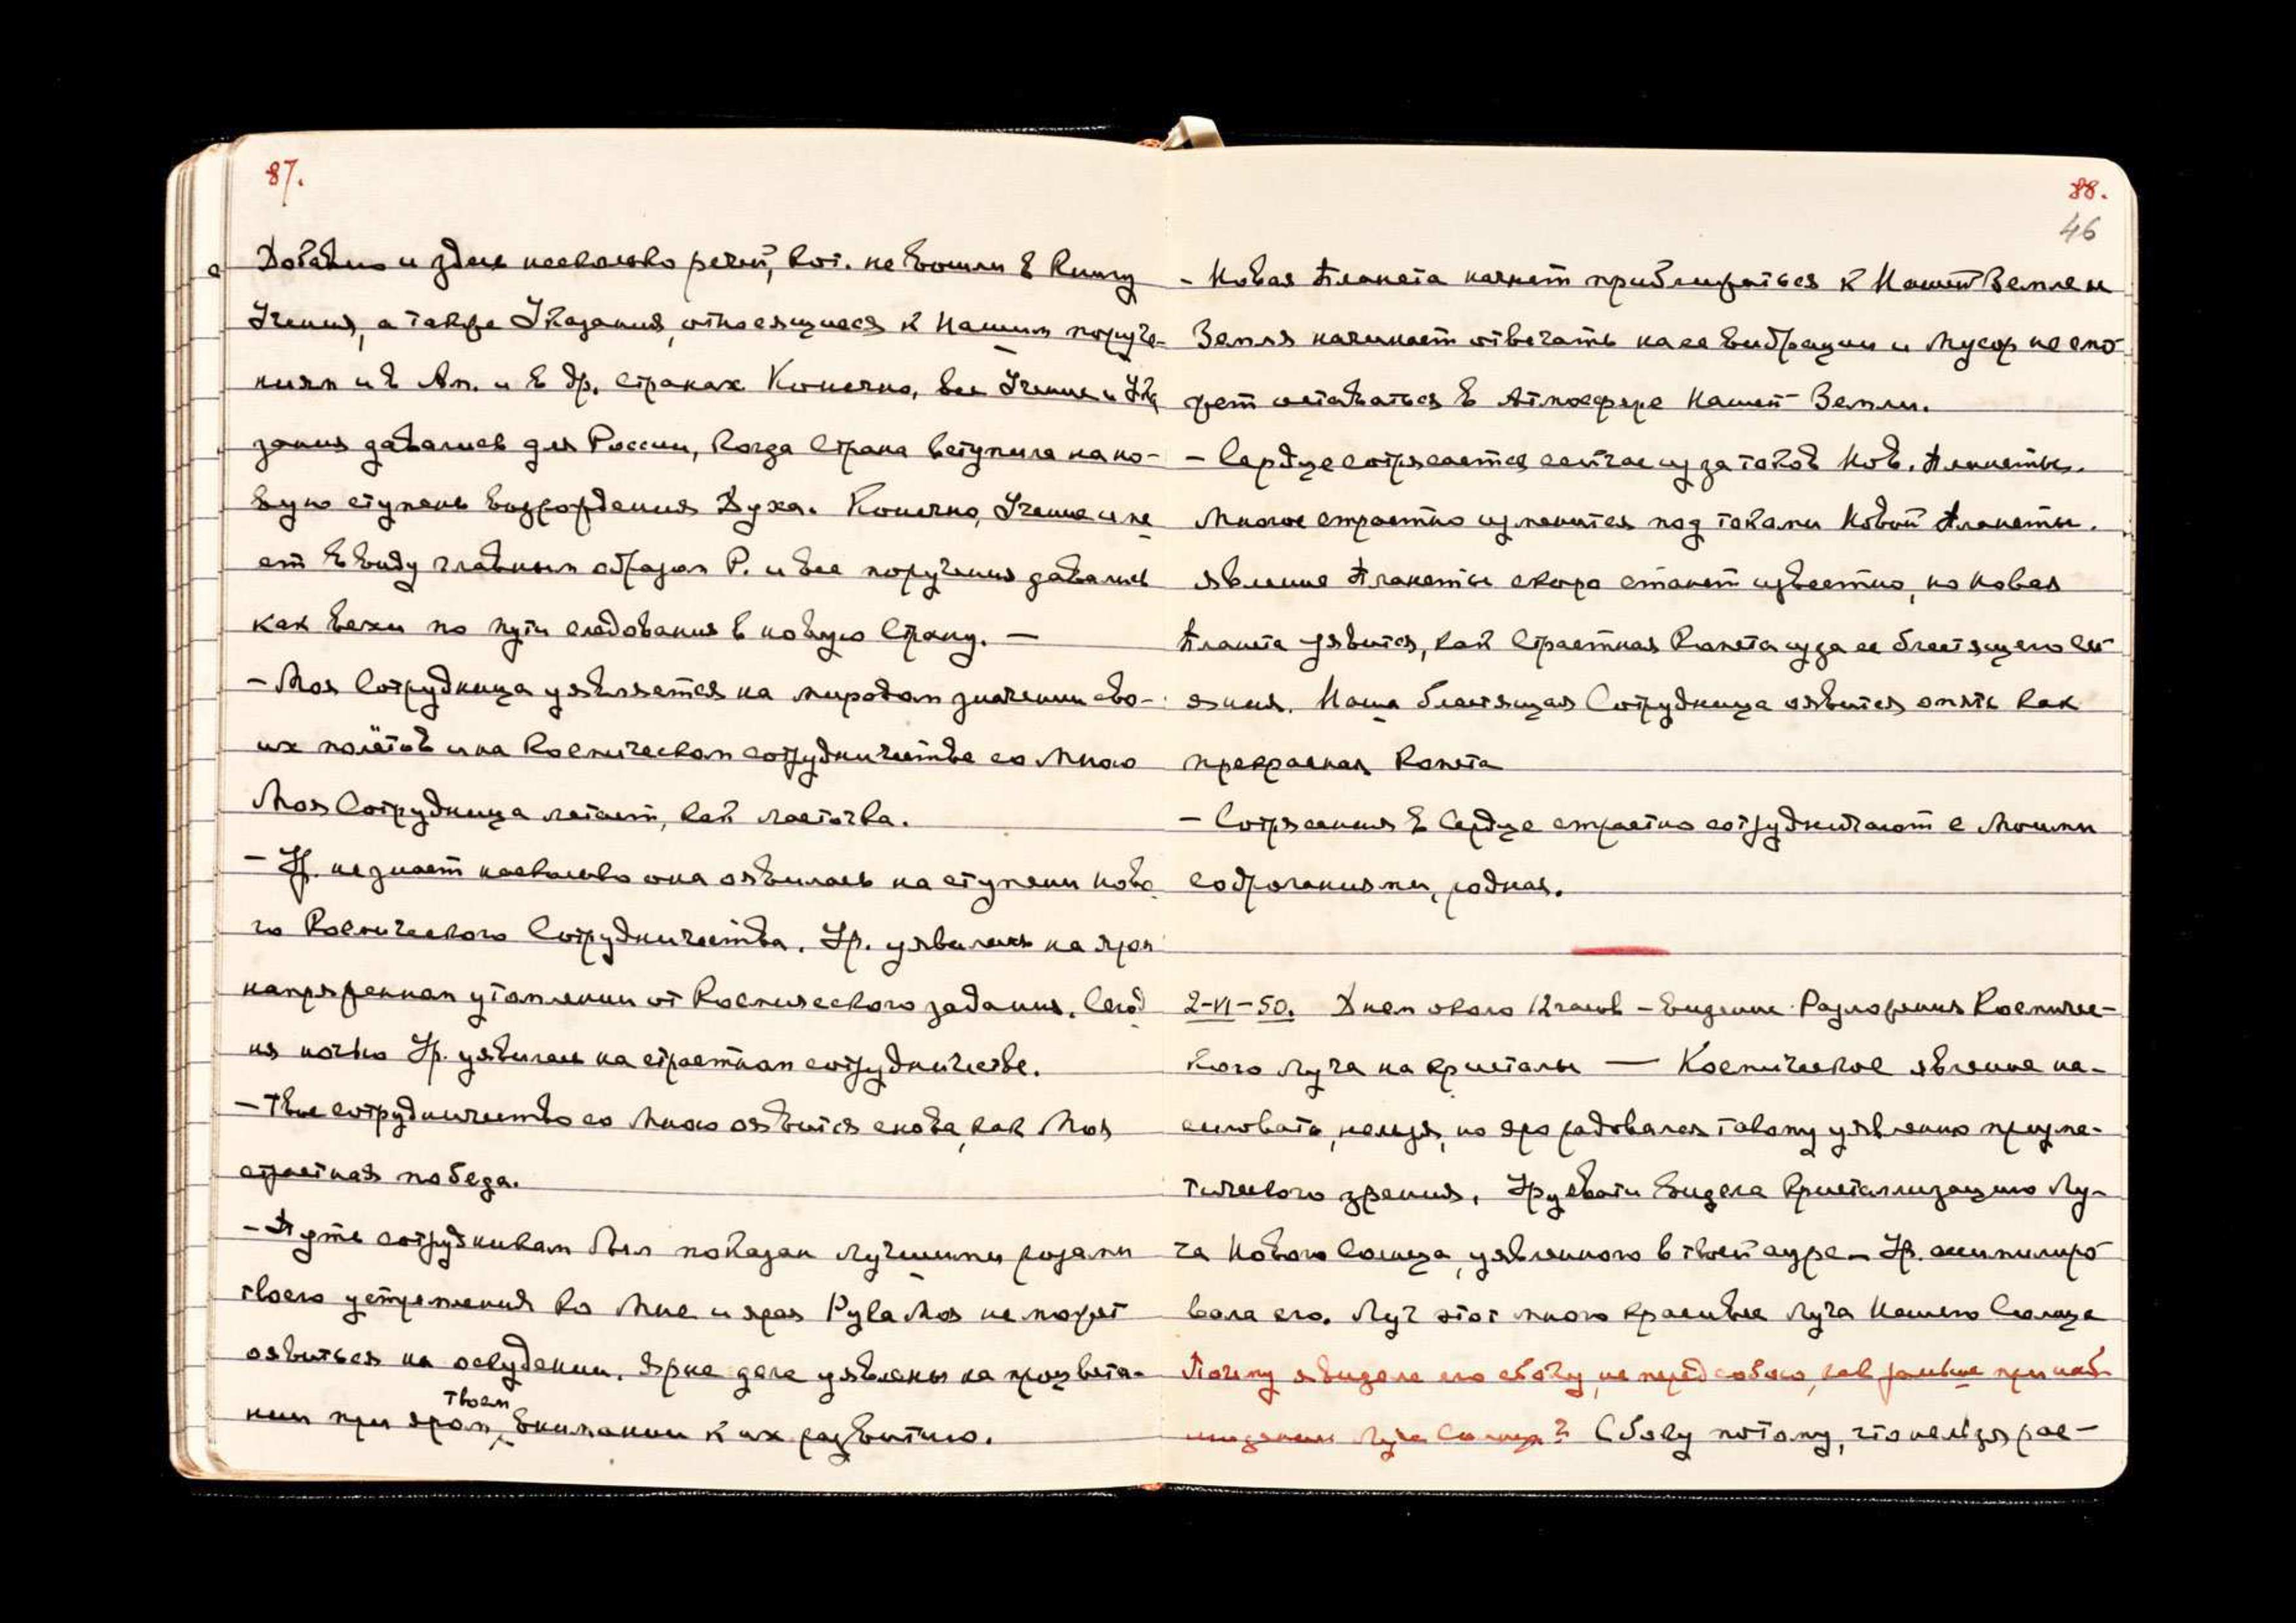 87.
Добавлю и здесь несколько речей, кот. не вошли в Книгу
Учения, а также Указания, относящиеся к Нашим поруче-
ниям и в Ам. и в др. странах Конечно, все Учение и Ука
зания давались для России, когда Страна вступила на но-
вую ступень возрождения Духа. Конечно, Учение име
ет ввиду главным образом Р. и все поручения давались
как вехи по пути следования в новую Страну. —
- Моя Сотрудница уявляется на мировом значении сво-
их полётов и на Космическом сотрудничестве со Мною
Моя Сотрудница летает, как ласточка.
- Ур. не знает насколько она оявилась на ступени ново
го Космического Сотрудничества. Ур. уявилась на яром
напряженном утомлении от Космического задания. Сегод
ня ночью Ур. уявилась на страстном сотрудничестве.
- Твое сотрудничество со Мною оявится снова, как Моя
страстная победа.
- Путь сотрудникам был показан лучшими годами
твоего устремления ко Мне и ярая Рука Моя не может
оявиться на оскудении. Ярые дела уявлены на процвета-
твоем
нии при яром внимании к их развитию.
88.
46
- Новая Планета начнет приближаться к Нашей Земле и
Земля начинает отвечать на ее вибрации и мусор не смо
жет оставаться в Атмосфере Нашей Земли.
- Сердце сотрясается сейчас из за токов Нов. Планеты.
Многое страстно изменится под токами Новой Планеты.
явление Планеты скоро станет известно, но новая
Планета уявится, как Страстная Комета из за ее блестящего си
яния. Наша блестящая Сотрудница оявится опять как
прекрасная Комета
- Сотрясения в Сердце страстно сотрудничают с Моими
содроганиями, родная.
2-VI-50. Днем около 12 часов - видение Разложения Космичес-
кого луча на кристалы — Космическое явление на-
силовать, нельзя, но яро радовался такому уявлению призма-
тического зрения. Урусвати видела Кристаллизацию Лу-
ча Нового Солнца, уявленного в твоей ауре - Ур. ассимилиро
вала его. Луч этот много красивее Луча Нашего Солнца
Почему я видела его сбоку, не перед собою, как раньше при наб
людении Луча Солнца? Сбоку потому, что нельзя рас-